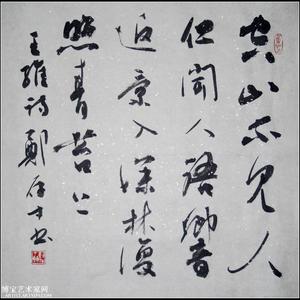 空山不見人
但聞人語響
返景入深林復
照青苔上
王維詩 鄭 才书
博宝艺术家网
ARTIST.ARTXUN.COM